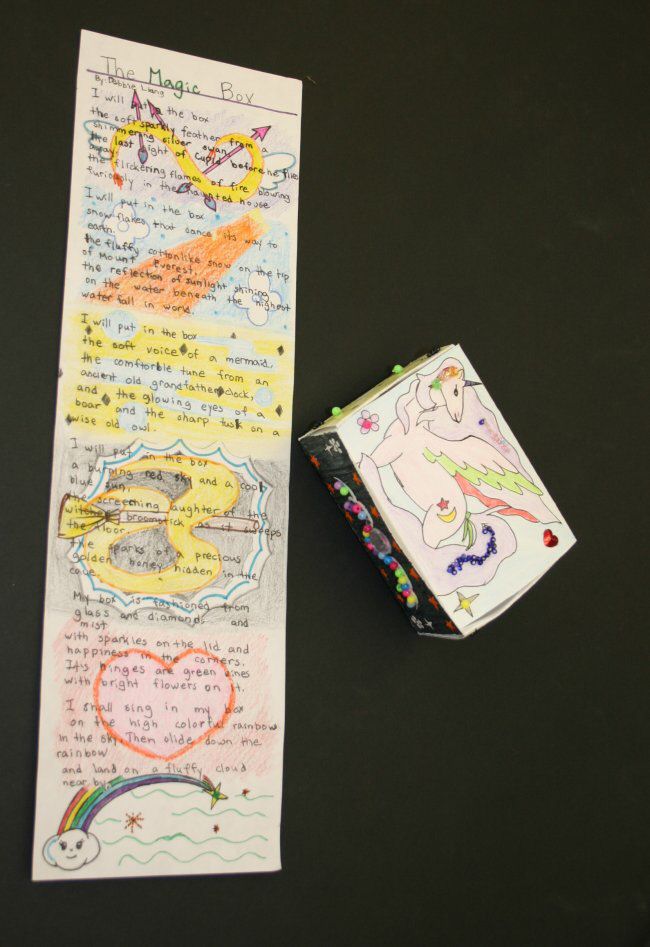 The Magic Box
By: Debbie Liang
I will put in the box
the soft sparkly feather from a
shimmering silver swan,
the last sight of Cupid before he flies
away.
the flickering flames of fire blowing
furiously in the haunted house
I will put in the box
snowflakes that dance its way to
earth.
the fluffy cottonlike snow on the tip
of Mount Everest,
the reflection of sunlight shining
on the water beneath the highest
waterfall in world.
I will put in the box
the soft voice of a mermaid,
the comftorble tune from an
ancient old grandfather clock,
and the glowing eyes of a
boar and the sharp tusk on a
wise old owl.
I will put in the box
a burning red sky and a cool
blue sun,
the screeching laughter of the
witches broomstick as it sweeps
the floor.
the sparks of a precious
golden honey hidden in the
cave.
My box is fashioned from
glass and diamonds and
mist
with sparkles on the lid and
happiness in the corners.
It's hinges are green vines
with bright flowers on it.
I shall sing in my box
on the high colorful rainbow
in the sky. Then slide down the
rainbow
and land on a fluffy cloud
near by.